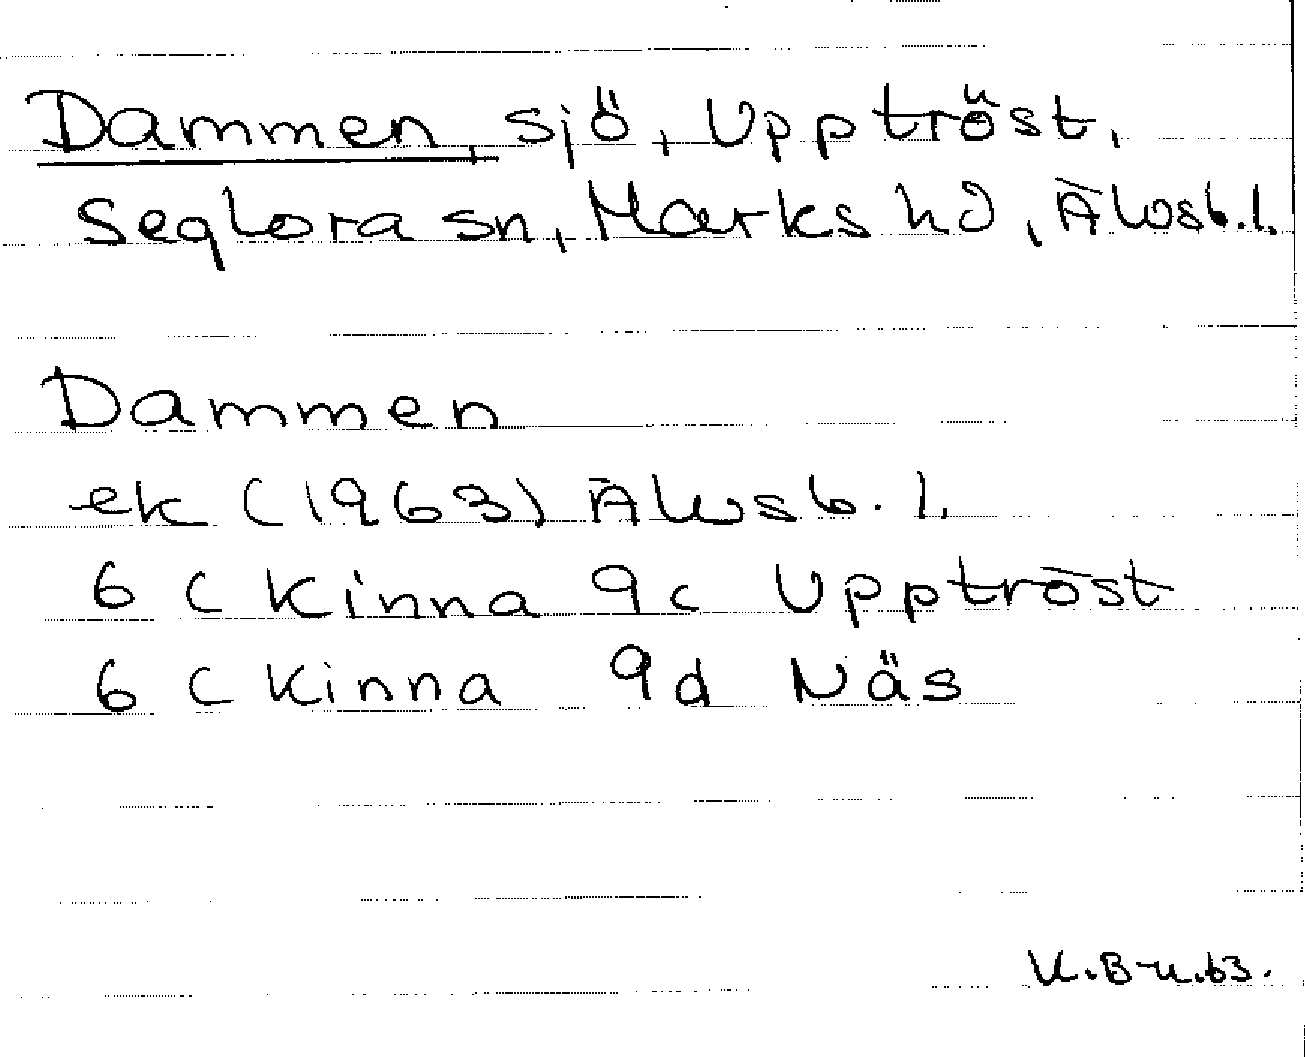 Dammen, sjö, Upptröst,
Seglora sn, Marks hd, Älvsb.l.
Dammen
ek (1963) Älvsb. l.
6 C Kinna 9c Upptröst
6 C Kinna 9d Näs
K.B-u.63.